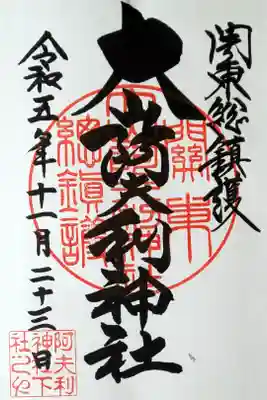 関東総鎮護
大山阿夫利神社
令和五年十一月二十三日
關東
總鎮護
阿夫利
神社下
社之印